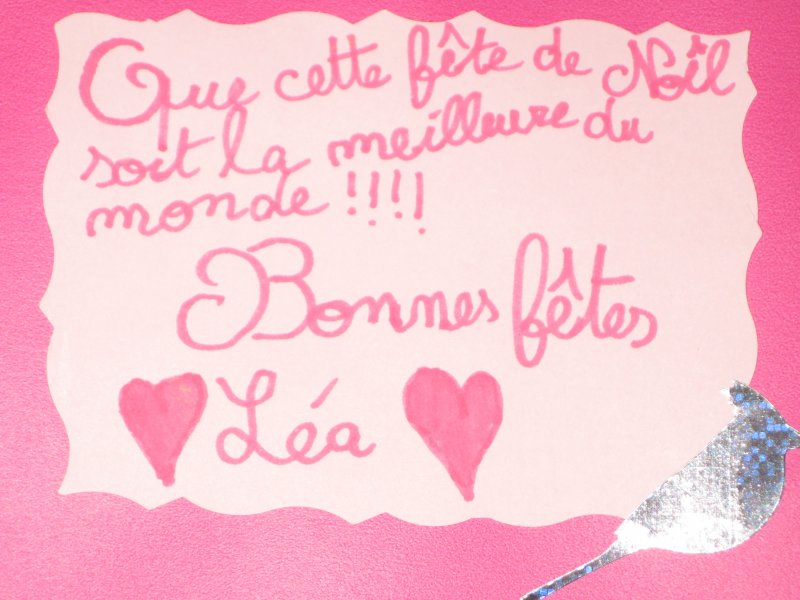 Que cette fête de Noîl
soit la meilleure du
monde !!!!
Bonnes fêtes
Léa